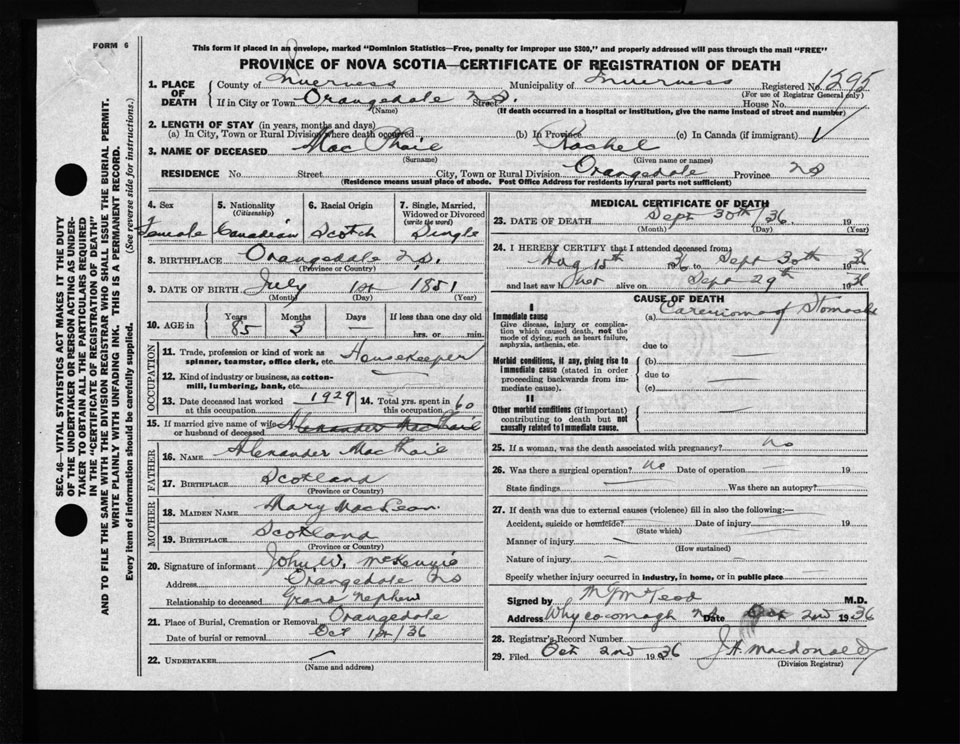 FORM 6
This form if placed in an envelope, marked "Dominion Statistics—Free, penalty for improper use $300," and properly addressed will pass through the mail "FREE"
PROVINCE OF NOVA SCOTIA—CERTIFICATE OF REGISTRATION OF DEATH
1. PLACE OF DEATH County of Inverness Municipality of Inverness Registered No. 1295
(For use of Registrar General only)
If in City or Town Orangedale N.S. Street House No.
(Name) (If death occurred in a hospital or institution, give the name instead of street and number)
2. LENGTH OF STAY (in years, months and days)
(a) In City, Town or Rural Division where death occurred (b) In Province (c) In Canada (if immigrant)
3. NAME OF DECEASED MacPhail Rachel
(Surname) (Given name or names)
RESIDENCE No. Street City, Town or Rural Division Orangedale Province NS
(Residence means usual place of abode. Post Office Address for residents in rural parts not sufficient)
4. Sex Female
5. Nationality (Citizenship) Canadian
6. Racial Origin Scotch
7. Single, Married, Widowed or Divorced (write the word) Single
8. BIRTHPLACE Orangedale N.S.
(Province or Country)
9. DATE OF BIRTH July 1st 1851
(Month) (Day) (Year)
10. AGE in Years 85 Months 3 Days — If less than one day old hrs. or min.
OCCUPATION
11. Trade, profession or kind of work as spinner, teamster, office clerk, etc. Housekeeper
12. Kind of industry or business, as cotton-mill, lumbering, bank, etc. —
13. Date deceased last worked at this occupation 1929
14. Total yrs. spent in this occupation 60
15. If married give name of wife or husband of deceased Alexander MacPhail
FATHER
16. NAME Alexander MacPhail
17. BIRTHPLACE Scotland
(Province or Country)
MOTHER
18. MAIDEN NAME Mary MacLean
19. BIRTHPLACE Scotland
(Province or Country)
20. Signature of informant John W. McKenzie
Address Orangedale NS
Relationship to deceased Grand Nephew
21. Place of Burial, Cremation or Removal Orangedale
Date of burial or removal Oct 1st/36
22. UNDERTAKER —
(Name and address)
MEDICAL CERTIFICATE OF DEATH
23. DATE OF DEATH Sept 30th/36 19
(Month) (Day) (Year)
24. I HEREBY CERTIFY that I attended deceased from
Aug 15th 36 to Sept 30th 1936
and last saw her alive on Sept 29th 1936
CAUSE OF DEATH
I
Immediate cause
Give disease, injury or complication which caused death, not the mode of dying, such as heart failure, asphyxia, asthenia, etc.
(a) Carcinoma of Stomach
due to
Morbid conditions, if any, giving rise to immediate cause (stated in order proceeding backwards from immediate cause)
(b) —
due to
(c) —
II
Other morbid conditions (if important) contributing to death but not causally related to immediate cause.
25. If a woman, was the death associated with pregnancy? no
26. Was there a surgical operation? no Date of operation — 19
State findings — Was there an autopsy?
27. If death was due to external causes (violence) fill in also the following:—
Accident, suicide or homicide? Date of injury 19
(State which)
Manner of injury —
(How sustained)
Nature of injury —
Specify whether injury occurred in industry, in home, or in public place
Signed by M D McLeod M.D.
Address Whycocomagh NS Date Oct 2nd 1936
28. Registrar's Record Number
29. Filed Oct 2nd 1936 J. H. Macdonald
(Division Registrar)
SEC. 46—VITAL STATISTICS ACT MAKES IT THE DUTY
OF THE UNDERTAKER OR PERSON ACTING AS UNDER-
TAKER TO OBTAIN ALL THE PARTICULARS REQUIRED
IN THE "CERTIFICATE OF REGISTRATION OF DEATH"
AND TO FILE THE SAME WITH THE DIVISION REGISTRAR WHO SHALL ISSUE THE BURIAL PERMIT.
WRITE PLAINLY WITH UNFADING INK. THIS IS A PERMANENT RECORD.
Every item of information should be carefully supplied. (See reverse side for instructions.)